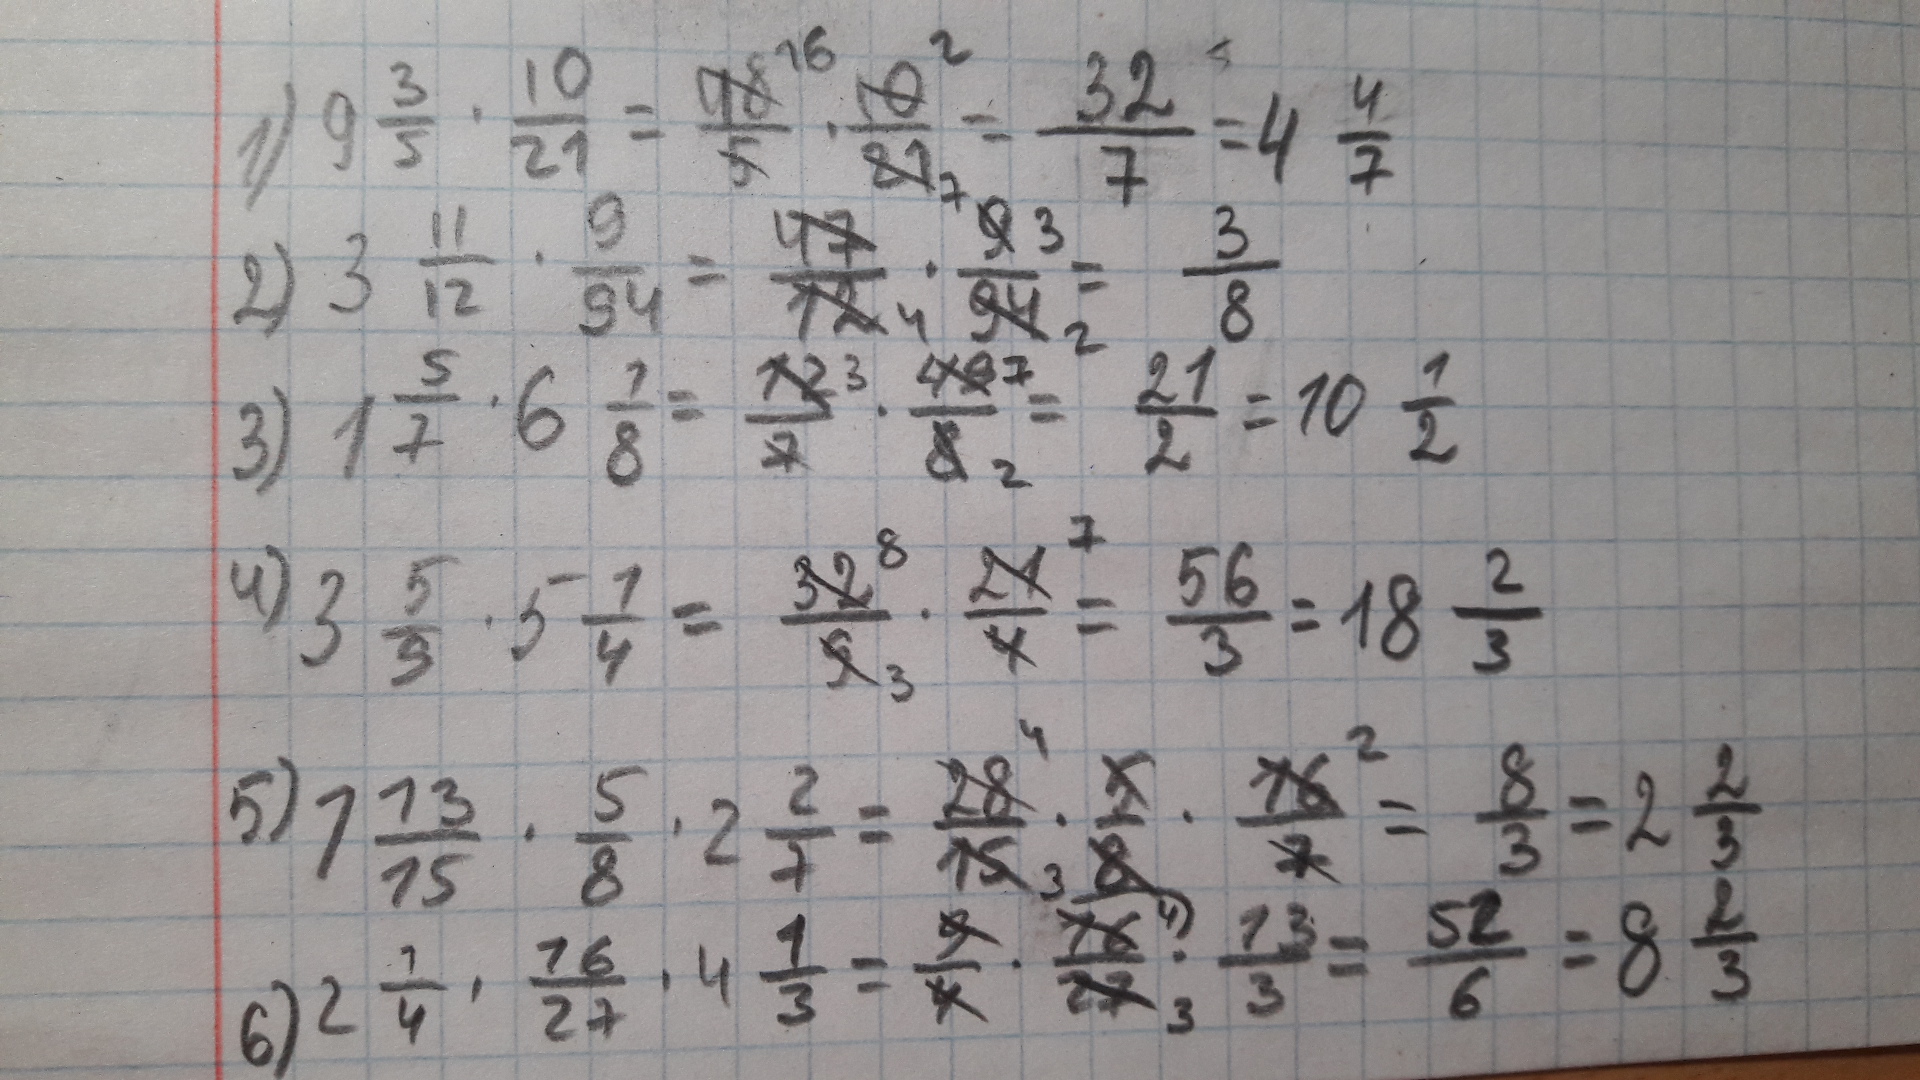 1) 9 3/5 · 10/21 = 48/5 16 · 10/21 2 7 = 32/7 = 4 4/7
2) 3 11/12 · 9/94 = 47/12 4 · 9/94 3 2 = 3/8
3) 1 5/7 · 6 1/8 = 12/7 3 · 49/8 7 2 = 21/2 = 10 1/2
4) 3 5/9 · 5 1/4 = 32/9 8 3 · 21/4 7 = 56/3 = 18 2/3
5) 1 13/15 · 5/8 · 2 2/7 = 28/15 4 3 · 5/8 · 16/7 2 = 8/3 = 2 2/3
6) 2 1/4 · 16/27 · 4 1/3 = 9/4 · 16/27 4 3 · 13/3 = 52/6 = 8 2/3